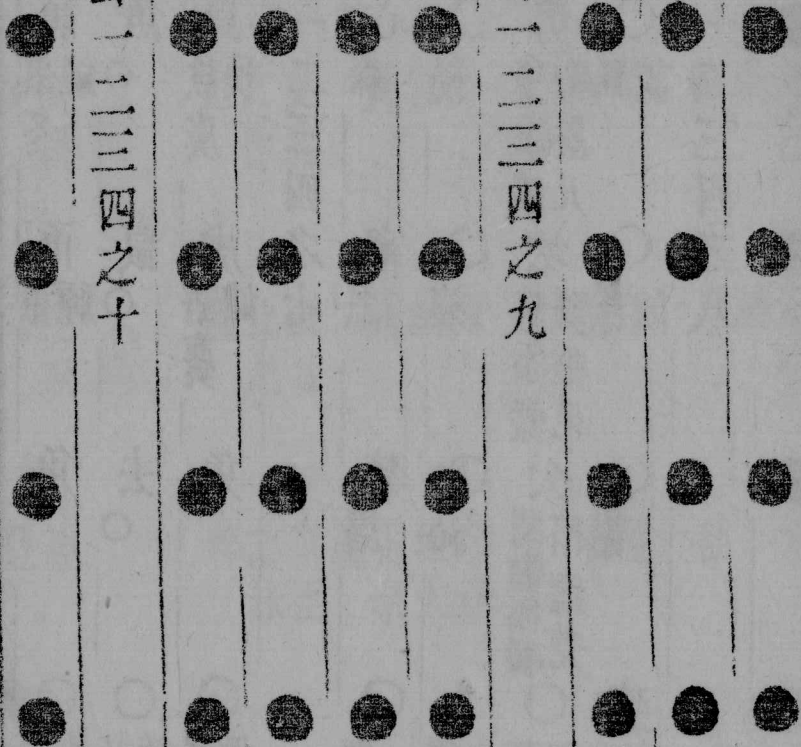 一二三四之九
一二三四之十